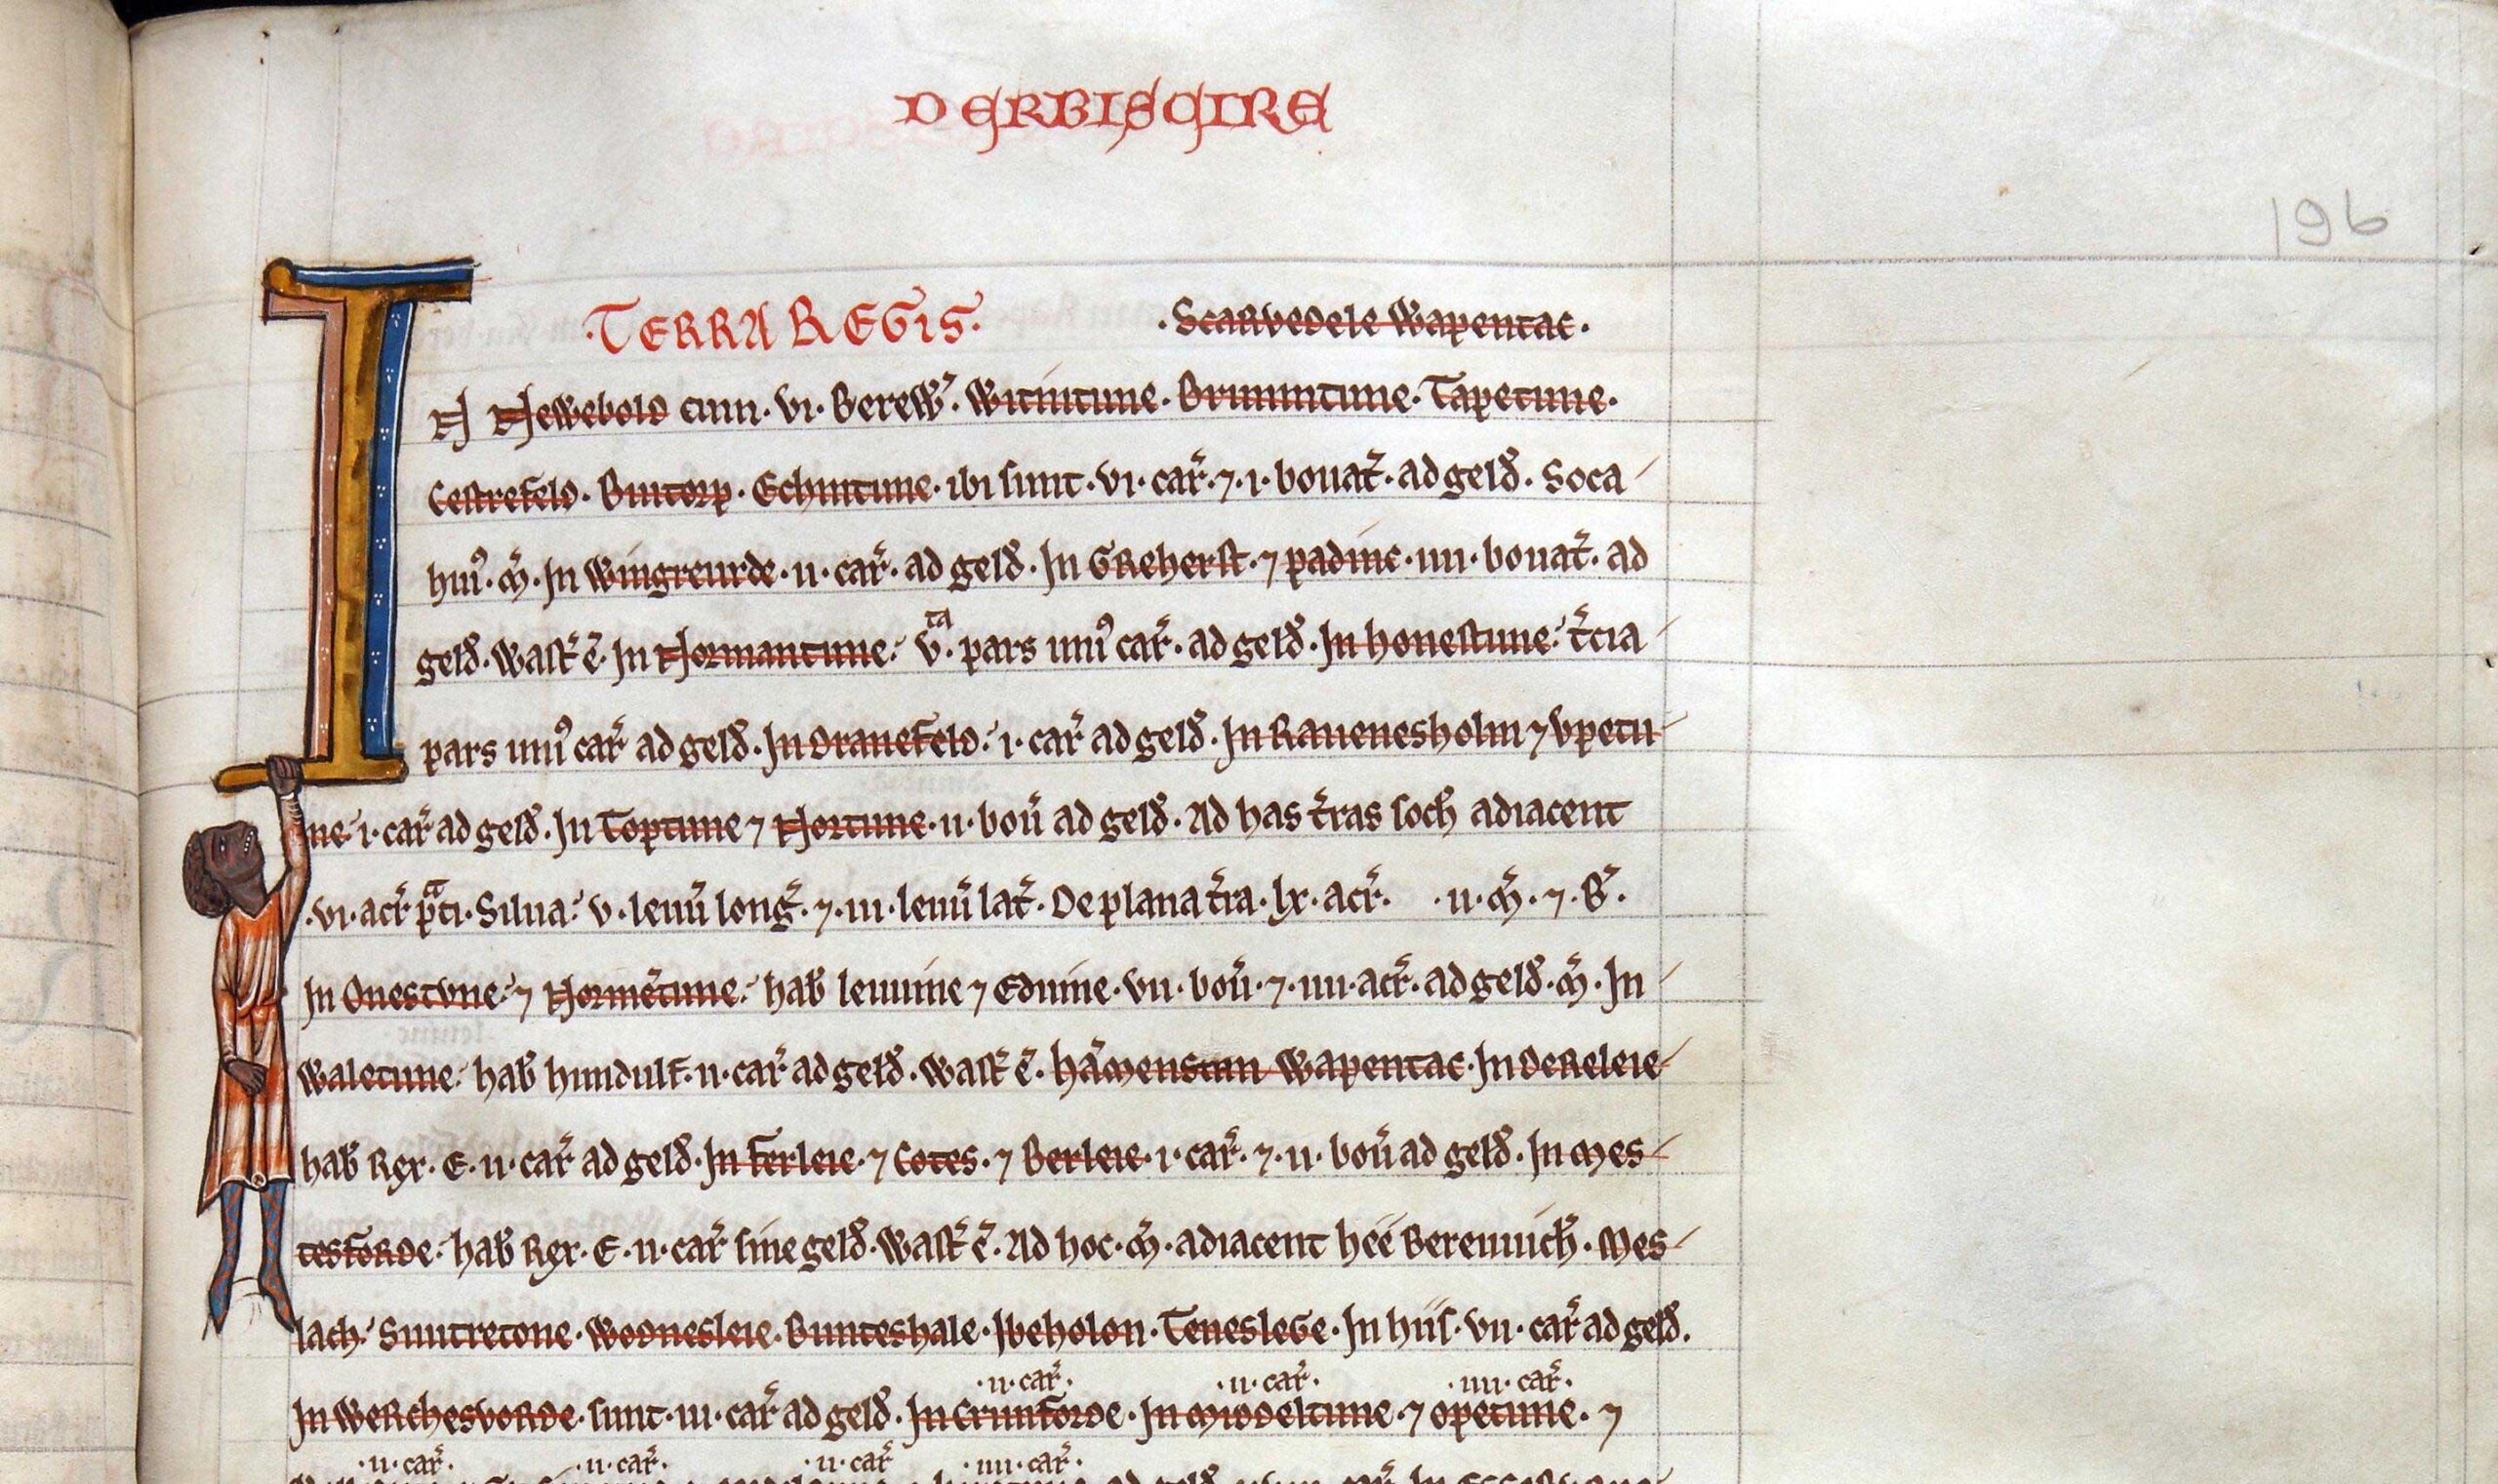 DERBISCIRE
196
·TERRA REGIS· ·Scarvedele Wapentac·
IN Newebold cum·vi·Berew̃·Witintune·Brimintune·Tapetune·
Cestrefeld·Buitorp·Echintune·ibi sunt·vi·car̃·⁊·i·bouat̃·ad geld̃·Soca
hui᷒·m̃·In Wingreurde·ii·car̃·ad geld̃·In Greherst·⁊ padinc·iiii·bouat̃·ad
geld̃·Wast̃ ẽ·In Normantune·vᵗᵃ·pars uni᷒ car̃·ad geld̃·In honestune·t̃cia
pars uni᷒ car̃ ad geld̃·In Dranefeld·i·car̃ ad geld̃·In Rauenesholm ⁊ Vpetu
ne·i·car̃ ad geld̃·In Toptune ⁊ Nortune·ii·bou᷈ ad geld̃·Ad has t̃ras soch̃ adiacent
·vi·acr̃ pᵃti·Silua·v·leuu᷈ long̃·⁊·iii·leuu᷈ lat̃·De plana t̃ra·lx·acr̃· ·ii·m̃·⁊·B̃·
In Onestune·⁊ Normẽtune·hab̃ leuuine ⁊ Eduine·vii·bou᷈·⁊·iiii·acr̃·ad geld̃·m̃·In
Waletune·hab̃ hundulf·ii·car̃ ad geld̃·Wast̃ ẽ·hãmenstan Wapentac·In Dereleie
hab̃ Rex·E·ii·car̃ ad geld̃·In Ferleie·⁊ Cotes·⁊ Berleie·i·car̃·⁊·ii·bou᷈ ad geld̃·In Mes
tesforde·hab̃ Rex·E·ii·car̃ sine geld̃·Wast̃ ẽ·Ad hoc·m̃·adiacent hee Bereuuich̃·Mes
lach·Snitretone·Wodnesleie·Bunteshale·Ibeholon·Teneslege·In hiis·vii·car̃ ad geld̃·
·ii·car̃· ·ii·car̃· ·iiii·car̃·
In Werchesvorde·sunt·iii·car̃ ad geld̃·In Crunforde·In Middeltune·⁊ Opetune·⁊
·ii·car̃· ·ii·car̃· ·ii·car̃ ·iiii·car̃·